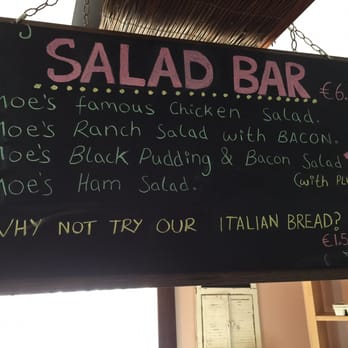 SALAD BAR €6.
Moe's famous Chicken Salad.
Moe's Ranch Salad with BACON.
Moe's Black Pudding & Bacon Salad
Moe's Ham Salad. (with
WHY NOT TRY OUR ITALIAN BREAD?
€1.5